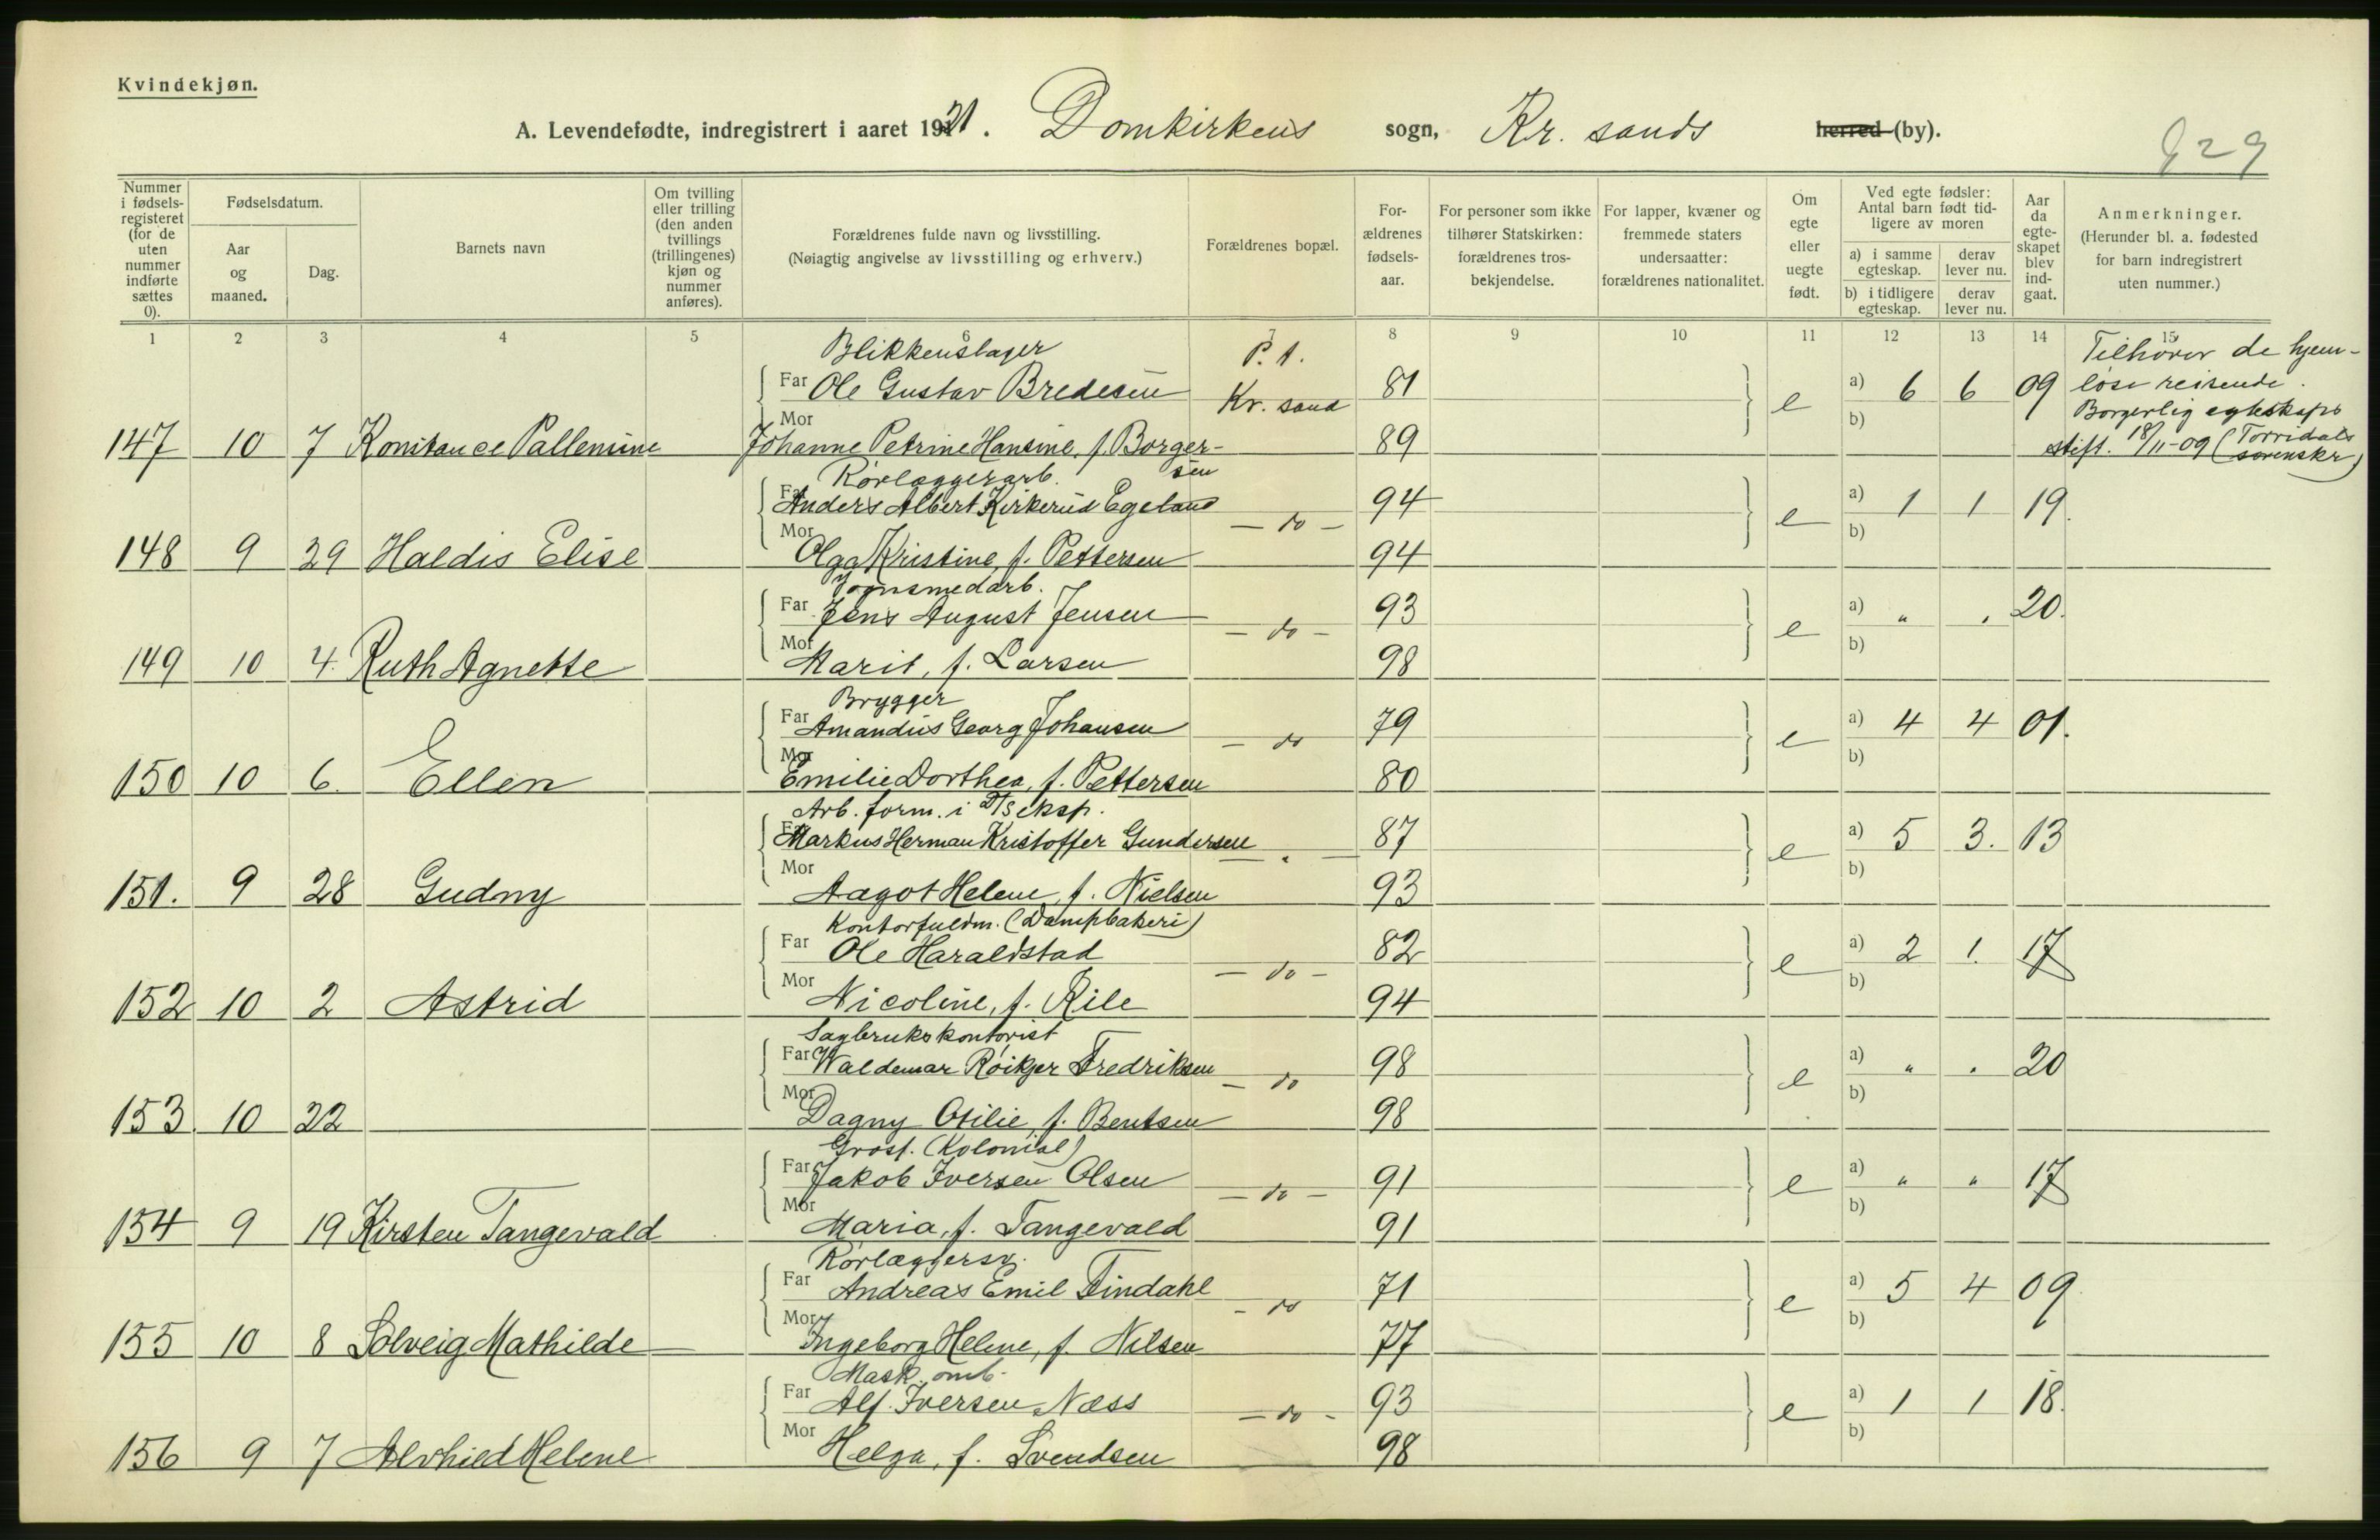 Kvindekjøn.
A. Levendefødte, indregistrert i aaret 1921. Domkirkens sogn, Kr. sands herred (by).
829
Nummer i fødsels-registeret (for de uten nummer indførte sættes 0).
Fødselsdatum.
Aar og maaned.
Dag.
Barnets navn
Om tvilling eller trilling (den anden tvillings (trillingenes) kjøn og nummer anføres).
Forældrenes fulde navn og livsstilling.
(Nøiagtig angivelse av livsstilling og erhverv.)
Forældrenes bopæl.
For-ældrenes fødsels-aar.
For personer som ikke tilhører Statskirken: forældrenes tros-bekjendelse.
For lapper, kvæner og fremmede staters undersaatter: forældrenes nationalitet.
Om egte eller uegte født.
Ved egte fødsler: Antal barn født tid-ligere av moren
a) i samme egteskap.
derav lever nu.
b) i tidligere egteskap.
derav lever nu.
Aar da egte-skapet blev ind-gaat.
Anmerkninger.
(Herunder bl. a. fødested for barn indregistrert uten nummer.)
1 2 3 4 5 6 7 8 9 10 11 12 13 14 15
Blikkenslager P. t. Tilhører de hjem-
Far Ole Gustav Bredesen Kr. sand 81 e a) 6 6 09 løse reisende.
Mor b) Borgerlig egteskaps
147 10 7 Konstance Pallemine Johanne Petrine Hansine, f. Borger- 89 stift. 18/11-09 (Torridals
sen sorenskr)
Rørlæggerarb.
Far Anders Albert Kirkerud Egeland — do — 94 e a) 1 1 19.
Mor b)
148 9 29 Haldis Elise Olga Kristine, f. Pettersen 94
Vognsmedarb.
Far Jens August Jensen — do — 93 e a) " . 20.
Mor b)
149 10 4. Ruth Agnette Marit, f. Larsen 98
Brygger
Far Amandus Georg Johansen — do 79 e a) 4 4 01.
Mor b)
150 10 6. Ellen Emilie Dorthea, f. Pettersen 80
Arb. form. i D/S eksp.
Far Markus Herman Kristoffer Gundersen — " — 87 e a) 5 3. 13
Mor b)
151. 9 28 Gudny Aagot Helene, f. Nielsen 93
Kontorfuldm. (Dampbakeri)
Far Ole Haraldstad — do — 82 e a) 2 1. 17
Mor b)
152 10 2 Astrid Nicoline, f. Rile 94
Sagbrukskontorist
Far Waldemar Röikjer Fredriksen — do 98 e a) " . 20
Mor b)
153. 10 22 Dagny Otilie, f. Bentsen 98
Gross. (Kolonial)
Far Jakob Iversen Olsen — do — 91 e a) " " 17
Mor b)
154 9 19 Kirsten Tangevald Maria, f. Tangevald 91
Rørlæggersv.
Far Andreas Emil Tindahl — do 71 e a) 5 4 09.
Mor b)
155 10 8 Solveig Mathilde Ingeborg Helene, f. Nilsen 77
Mask. arb.
Far Alf Iversen Næss — do — 93 e a) 1 1 18.
Mor b)
156 9 7 Alvhild Helene Helga, f. Svendsen 98